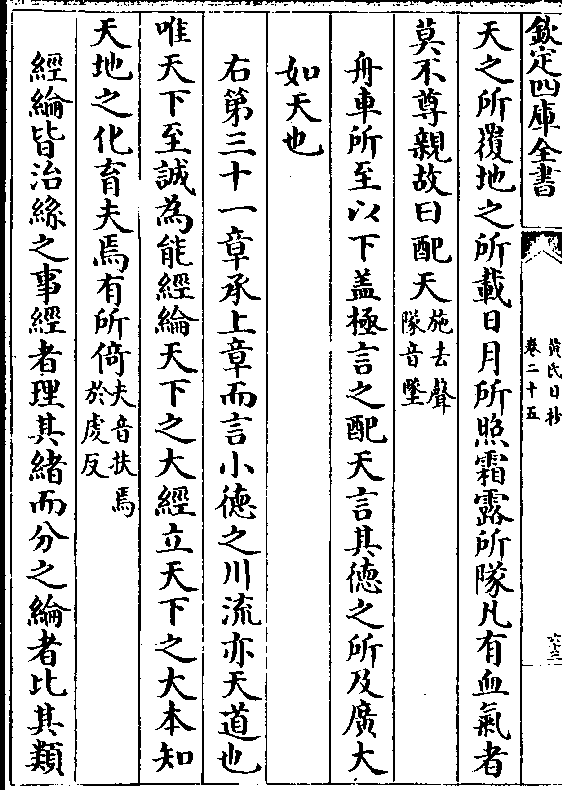 欽定四庫全書
黃氏日抄
卷二十五
六十二
天之所覆地之所載日月所照霜露所隊凡有血氣者
莫不尊親故曰配天施去聲隊音墜
舟車所至以下盖極言之配天言其德之所及廣大
如天也
右第三十一章承上章而言小德之川流亦天道也
唯天下至誠為能經綸天下之大經立天下之大本知
天地之化育夫焉有所倚夫音扶焉於䖍反
經綸皆治絲之事經者理其緒而分之綸者比其類